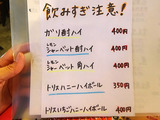 飲みすぎ注意!
ガリ酎ハイ 400円
レモンシャーベット酎ハイ 400円
レモンシャーベット角ハイ 400円
トリスハニーハイボール 350円
トリスいちごハニーハイボール 400円